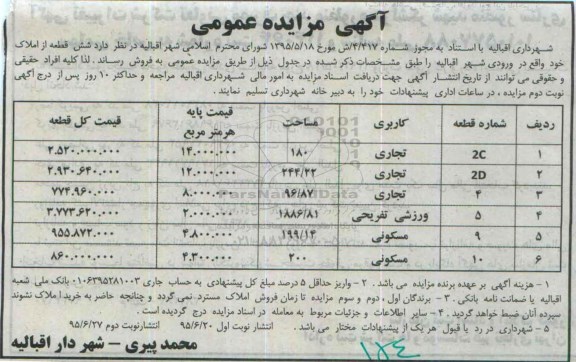 آگهی مزایده عمومی
شهرداری اقبالیه با استناد به مجوز شماره ۳/۴۱۷/ش مورخ ۱۳۹۵/۵/۱۸ شورای محترم اسلامی شهر اقبالیه در نظر دارد شش قطعه از املاک
خود واقع در ورودی شهر اقبالیه را طبق مشخصات ذکر شده در جدول ذیل از طریق مزایده عمومی به فروش رساند . لذا کلیه افراد حقیقی
و حقوقی می توانند از تاریخ انتشار آگهی جهت دریافت اسناد مزایده به امور مالی شهرداری اقبالیه مراجعه و حداکثر ۱۰ روز پس از درج آگهی
نوبت دوم مزایده ، در ساعات اداری پیشنهادات خود را به دبیر خانه شهرداری تسلیم نمایند .
ردیف شماره قطعه کاربری مساحت قیمت پایه هرمتر مربع قیمت کل قطعه
۱ 2C تجاری ۱۸۰ ۱۴.۰۰۰.۰۰۰ ۲.۵۲۰.۰۰۰.۰۰۰
۲ 2D تجاری ۲۴۴/۲۲ ۱۲.۰۰۰.۰۰۰ ۲.۹۳۰.۶۴۰.۰۰۰
۳ ۴ تجاری ۹۶/۸۷ ۸.۰۰۰.۰۰۰ ۷۷۴.۹۶۰.۰۰۰
۴ ۵ ورزشی تفریحی ۱۸۸۶/۸۱ ۲.۰۰۰.۰۰۰ ۳.۷۷۳.۶۲۰.۰۰۰
۵ ۹ مسکونی ۱۹۹/۱۴ ۴.۸۰۰.۰۰۰ ۹۵۵.۸۷۲.۰۰۰
۶ ۱۰ مسکونی ۲۰۰ ۴.۳۰۰.۰۰۰ ۸۶۰.۰۰۰.۰۰۰
۱ – هزینه آگهی بر عهده برنده مزایده می باشد . ۲ – واریز حداقل ۵ درصد مبلغ کل پیشنهادی به حساب جاری ۰۱۰۶۳۹۵۲۸۱۰۰۳ بانک ملی شعبه
اقبالیه یا ضمانت نامه بانکی . ۳ – برندگان اول ، دوم و سوم مزایده تا زمان فروش املاک مسترد نمی گردد و چنانچه حاضر به خرید املاک نشوند
سپرده آنان ضبط خواهد گردید . ۴ – سایر اطلاعات و جزئیات مربوط به معامله در اسناد مزایده درج گردیده است .
۵ – شهرداری در رد یا قبول هر یک از پیشنهادات مختار می باشد . انتشار نوبت اول ۹۵/۶/۲۰ انتشارنوبت دوم ۹۵/۶/۲۷
محمد پیری – شهر دار اقبالیه